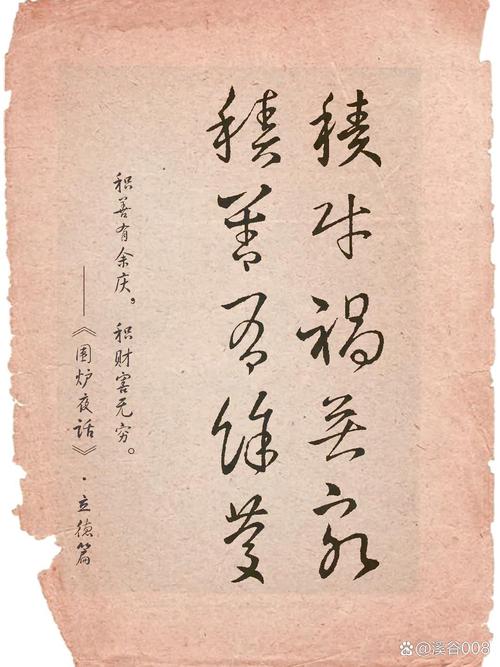 積財禍無窮
積善有餘慶
积善有余庆，积财害无穷。
——《围炉夜话》·立德篇
@溪谷008